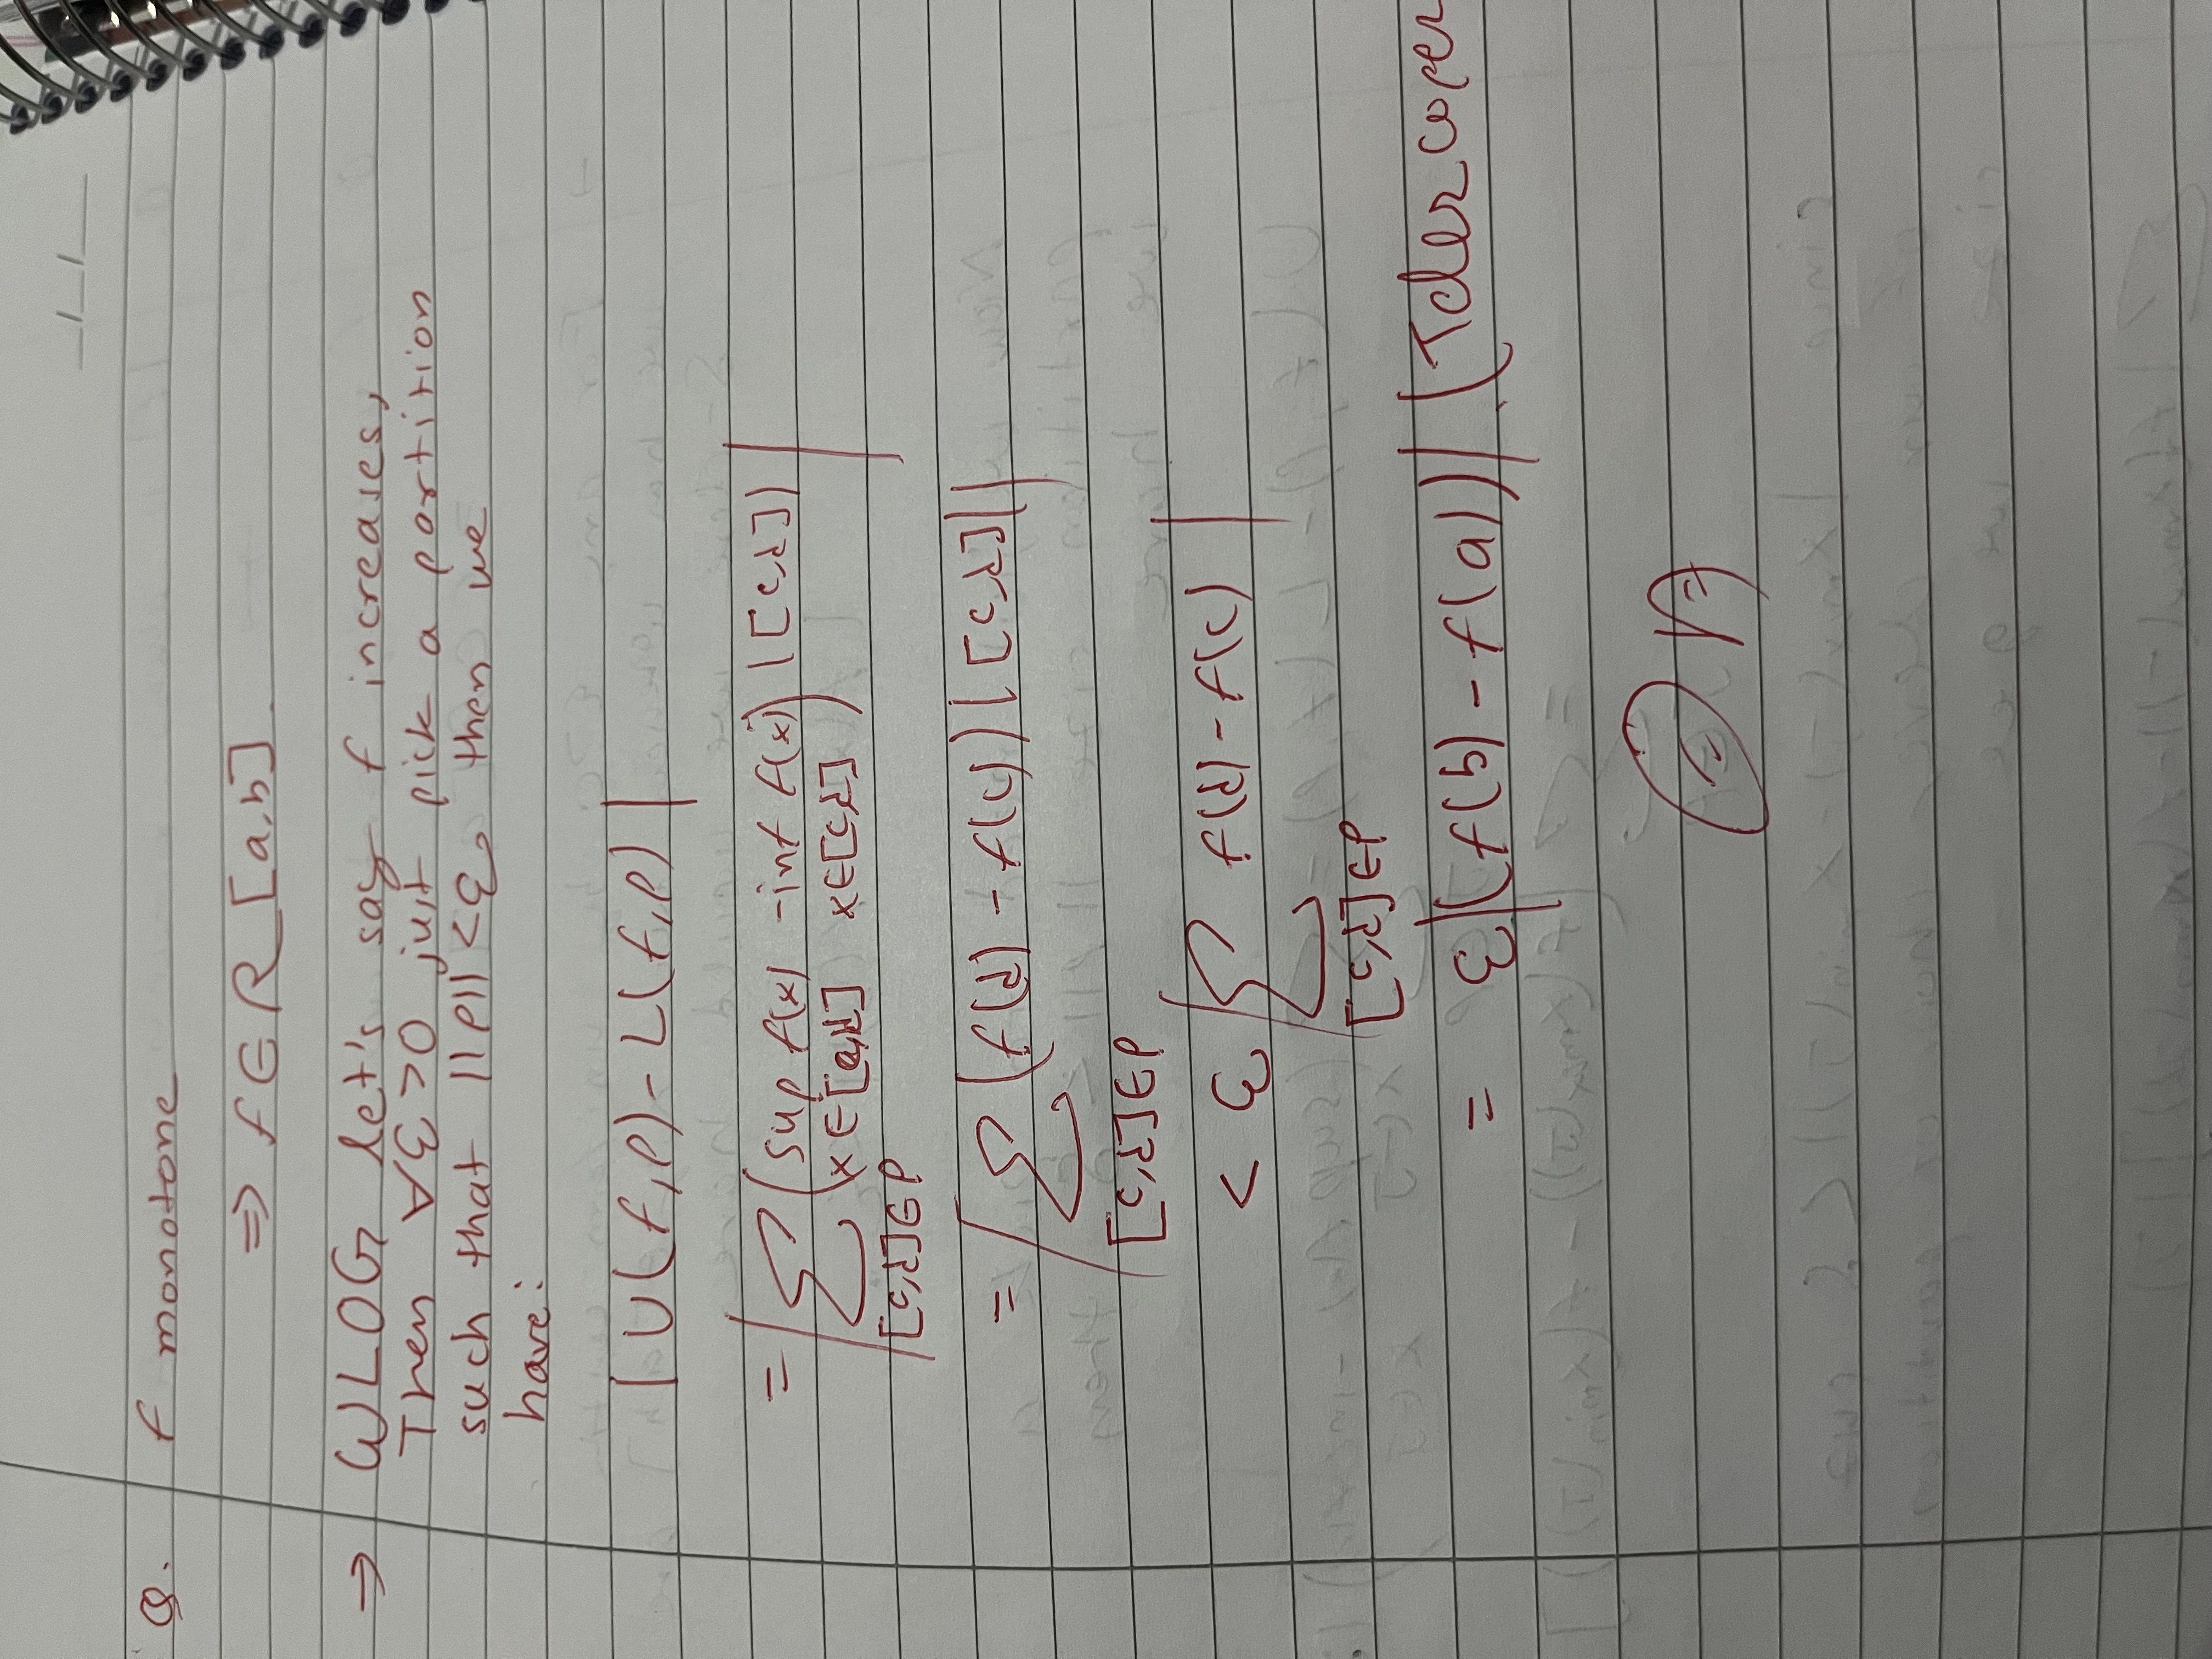 Q. f monotone
⇒ f ∈ R [a,b].
→ WLOG let's say f increases,
Then ∀ε>0 just pick a partition
such that ||P|| <ε, then we
have:
| U(f,P) - L(f,P) |
= | ∑ (sup f(x) - inf f(x)) |[c,d]| |
x∈[c,d] x∈[c,d]
[c,d]∈P
= | ∑ (f(d) - f(c)) |[c,d]| |
[c,d]∈P
< ε | ∑ f(d) - f(c) |
[c,d]∈P
= ε |(f(b) - f(a))| . (Telescopes